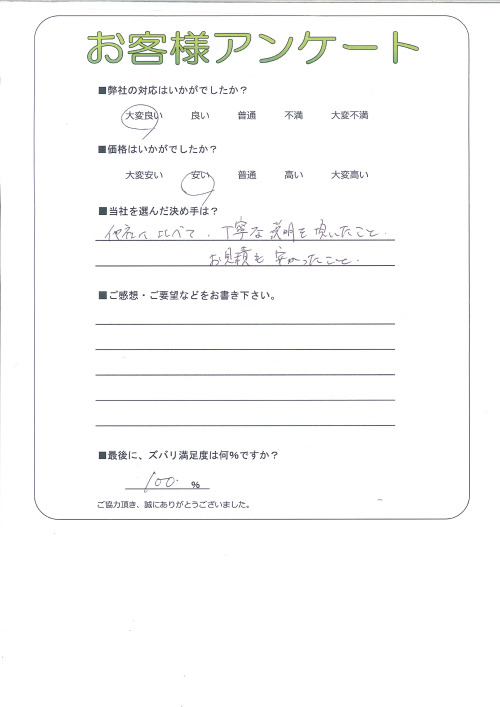 お客様アンケート
■弊社の対応はいかがでしたか？
大変良い 良い 普通 不満 大変不満
■価格はいかがでしたか？
大変安い 安い 普通 高い 大変高い
■当社を選んだ決め手は？
他社に比べて、丁寧な説明を頂いたこと。
お見積も安かったこと。
■ご感想・ご要望などをお書き下さい。
■最後に、ズバリ満足度は何％ですか？
100 ％
ご協力頂き、誠にありがとうございました。